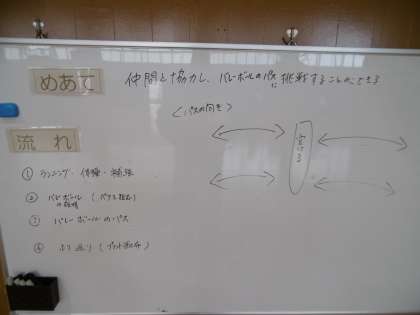 めあて
仲間と協力し、バレーボールのパスに挑戦することができる
<パスの向き>
流れ
① ランニング・体操・補強
② バレーボール(
③ バレーボールのパス
④ ふり返り(プリント配布)